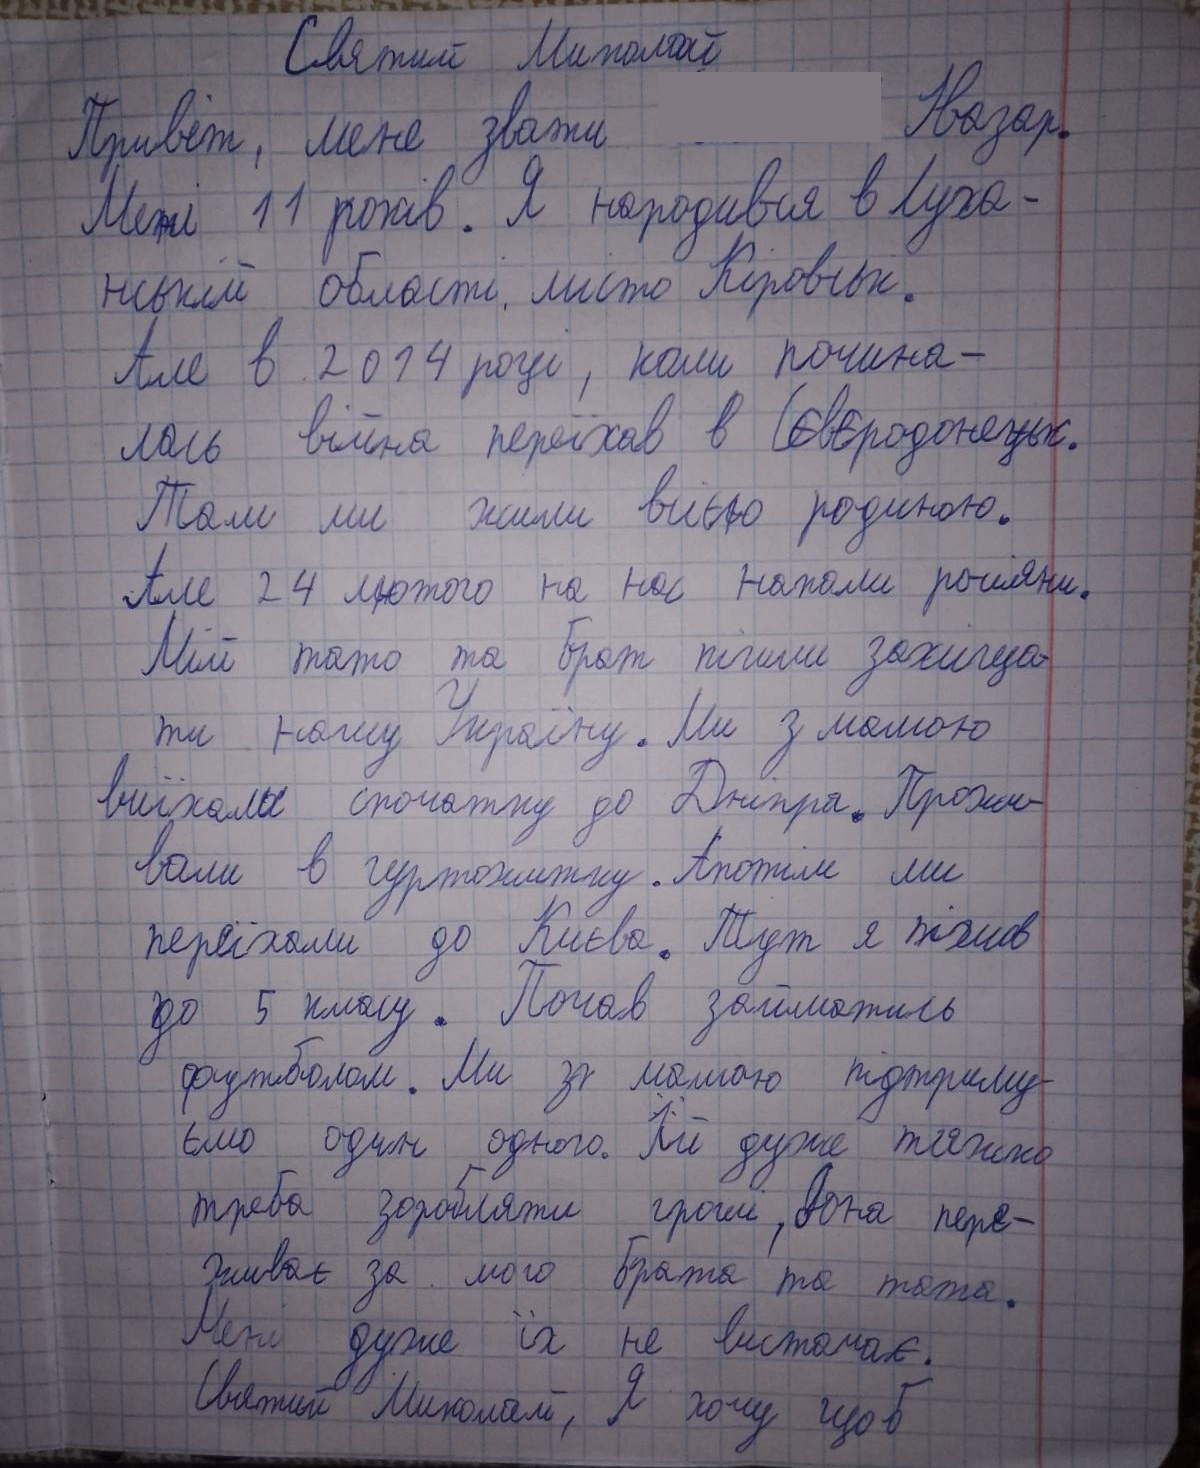 Святий Миколай
Привіт, мене звати Назар.
Мені 11 років. Я народився в Луха-
нській області, місто Кіровськ.
Але в 2014 році, коли почина-
лась війна переїхав в Сєвєродонецьк.
Там ми жили всією родиною.
Але 24 лютого на нас напали росіяни.
Мій тато та брат пішли захища-
ти нашу Україну. Ми з мамою
виїхали спочатку до Дніпра. Прожи-
вали в гуртожитку. Апотім ми
переїхали до Києва. Тут я пішов
до 5 класу. Почав займатись
футболом. Ми з мамою підтриму-
ємо один одного. Їй дуже тяжко
треба заробляти гроші, вона пере-
живає за мого брата та тата.
Мені дуже їх не вистачає.
Святий Миколай, Я хочу щоб